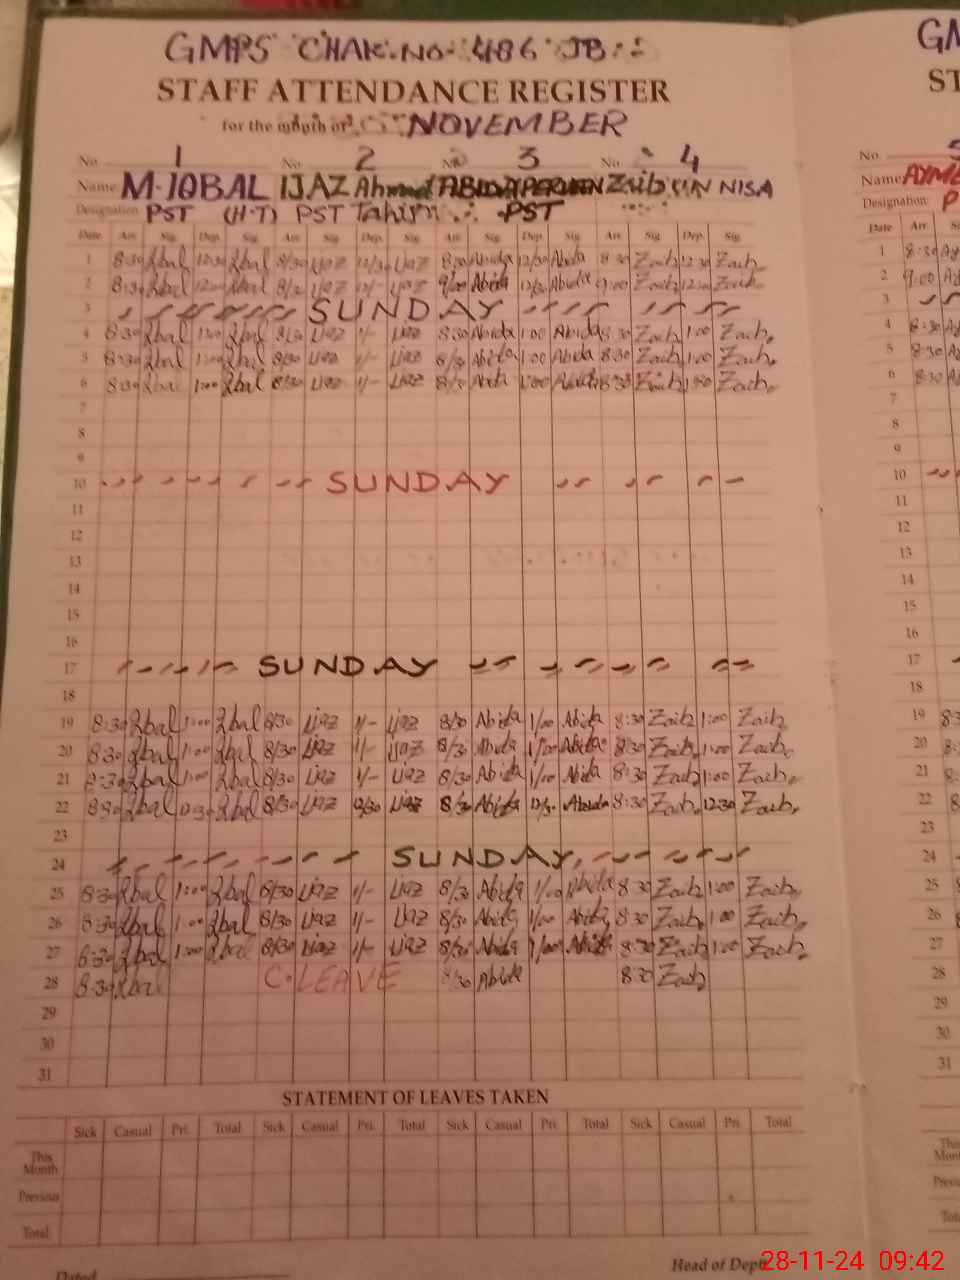 GMPS CHAK. No. 486 JB
GM
STAFF ATTENDANCE REGISTER
ST
for the month of NOVEMBER
No. 1 No. 2 No. 3 No. 4
No. 5
Name M. IQBAL IJAZ Ahmad ABIDA PERVEEN Zaib UN NISA
Name AYM
Designation PST (H.T) PST Tahir PST
Designation P
Date Arr. Sig. Dep. Sig. Arr. Sig. Dep. Sig. Arr. Sig. Dep. Sig. Arr. Sig. Dep. Sig.
Date Arr. Si
1 8:30 Iqbal 12:30 Iqbal 8/30 Ijaz 12/30 Ijaz 8/30 Abida 12/30 Abida 8:30 Zaib 12:30 Zaib
1 8:30 Ay
2 8:30 Iqbal Iqbal Ijaz Ijaz 9/00 Abida 12/30 Abida 9:00 Zaib Zaib
2 9:00 A
3 SUNDAY
3
4 8:30 Iqbal 1:00 Iqbal 8/30 Ijaz 1/- Ijaz 8/30 Abida 1:00 Abida 8:30 Zaib 1:00 Zaib
4 8:30 A
5 8:30 Iqbal 1:00 Iqbal 8/30 Ijaz 1/- Ijaz 8/30 Abida 1:00 Abida 8:30 Zaib 1:00 Zaib
5 8:30 A
6 8:30 Iqbal 1:00 Iqbal 8/30 Ijaz 1/- Ijaz 8/30 Abida 1:00 Abida 8:30 Zaib Zaib
6 8:30 A
7
7
8
8
9
9
10 SUNDAY
10
11
11
12
12
13
13
14
14
15
15
16
16
17 SUNDAY
17
18
18
19 8:30 Iqbal 1:00 Iqbal 8/30 Ijaz 1/- Ijaz 8/30 Abida 1/00 Abida 8:30 Zaib 1:00 Zaib
19 8:3
20 8:30 Iqbal 1:00 Iqbal 8/30 Ijaz 1/- Ijaz 8/30 Abida 1/00 Abida 8:30 Zaib 1:00 Zaib
20 8:
21 8:30 Iqbal 1:00 Iqbal 8/30 Ijaz 1/- Ijaz 8/30 Abida 1/00 Abida 8:30 Zaib 1:00 Zaib
21 8:
22 8:30 Iqbal Iqbal 8/30 Ijaz 12/30 Ijaz 8/30 Abida 12/30 Abida 8:30 Zaib 12:30 Zaib
22 8:
23
23
24 SUNDAY
24
25 8:30 Iqbal 1:00 Iqbal 8/30 Ijaz 1/- Ijaz 8/30 Abida 1/00 Abida 8:30 Zaib 1:00 Zaib
25 8
26 8:30 Iqbal 1:00 Iqbal 8/30 Ijaz 1/- Ijaz 8/30 Abida 1/00 Abida 8:30 Zaib 1:00 Zaib
26 8
27 8:30 Iqbal 1:00 Iqbal 8/30 Ijaz 1/- Ijaz 8/30 Abida 1/00 Abida 8:30 Zaib 1:00 Zaib
27
28 8:30 Iqbal C. LEAVE 8/30 Abida 8:30 Zaib
28
29
29
30
30
31
31
STATEMENT OF LEAVES TAKEN
Sick Casual Pri. Total Sick Casual Pri. Total Sick Casual Pri. Total Sick Casual Pri. Total
This Month
This Mon
Previous
Previ
Total
Tot
Dated
Head of Deptt.
28-11-24 09:42